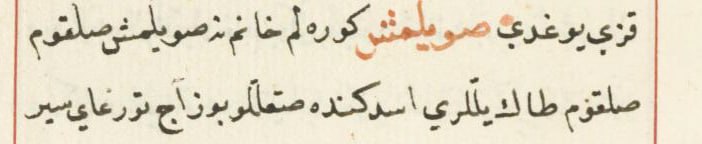 قزي يوغدي صويلمش كوره لم خانم نه صويلمش صلقوم
صلقوم طاك يللري اسدكنده صقاللو بوز آج تورغاي سير